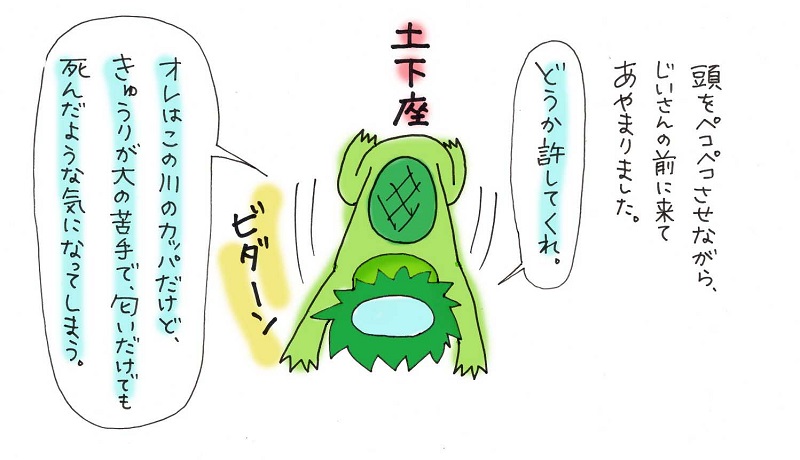 頭をペコペコさせながら、
じいさんの前に来て
あやまりました。
どうか許してくれ。
土下座
ビダーン
オレはこの川のカッパだけど、
きゅうりが大の苦手で、匂いだけでも
死んだような気になってしまう。